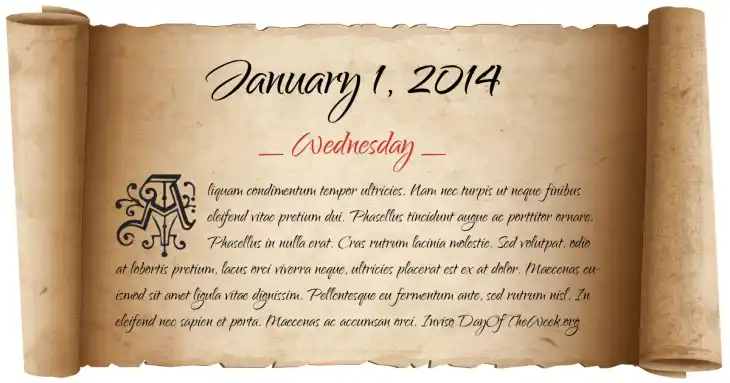 January 1, 2014
_ Wednesday _
Aliquam condimentum tempor ultricies. Nam nec turpis ut neque finibus
eleifend vitae pretium dui. Phasellus tincidunt augue ac porttitor ornare.
Phasellus in nulla erat. Cras rutrum lacinia molestie. Sed volutpat, odio
at lobortis pretium, lacus orci viverra neque, ultricies placerat est ex at dolor. Maecenas eu-
ismod sit amet ligula vitae dignissim. Pellentesque eu fermentum ante, sed rutrum nisl. In
eleifend nec sapien et porta. Maecenas ac accumsan orci. Inviso DayOfTheWeek.org